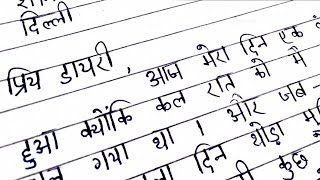 दिल्ली
प्रिय डायरी,
आज मेरा दिन एक
हुआ क्योंकि कल रात को मैं
गया था। और जब-
दिन थोड़ा
कुछ